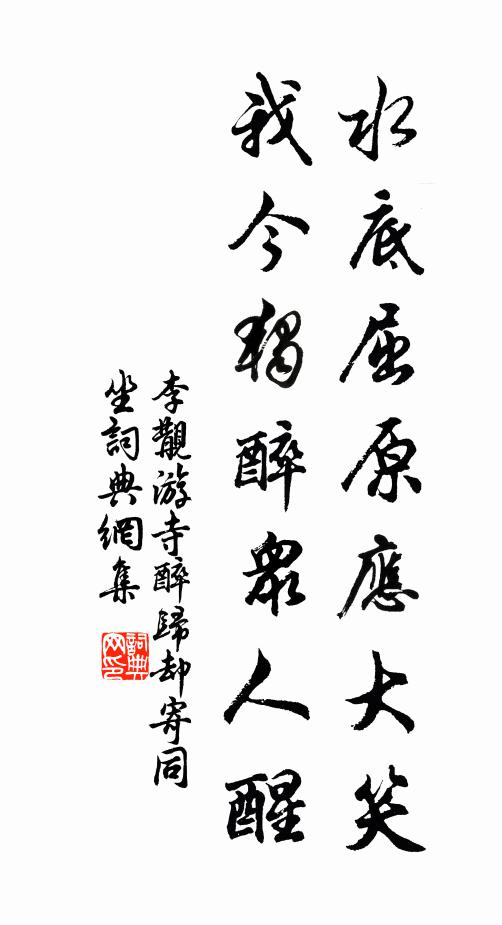 水底屈原應大笑
我今獨醉眾人醒
李觀游寺醉歸却寄同
坐詞典網集
詞典
网印